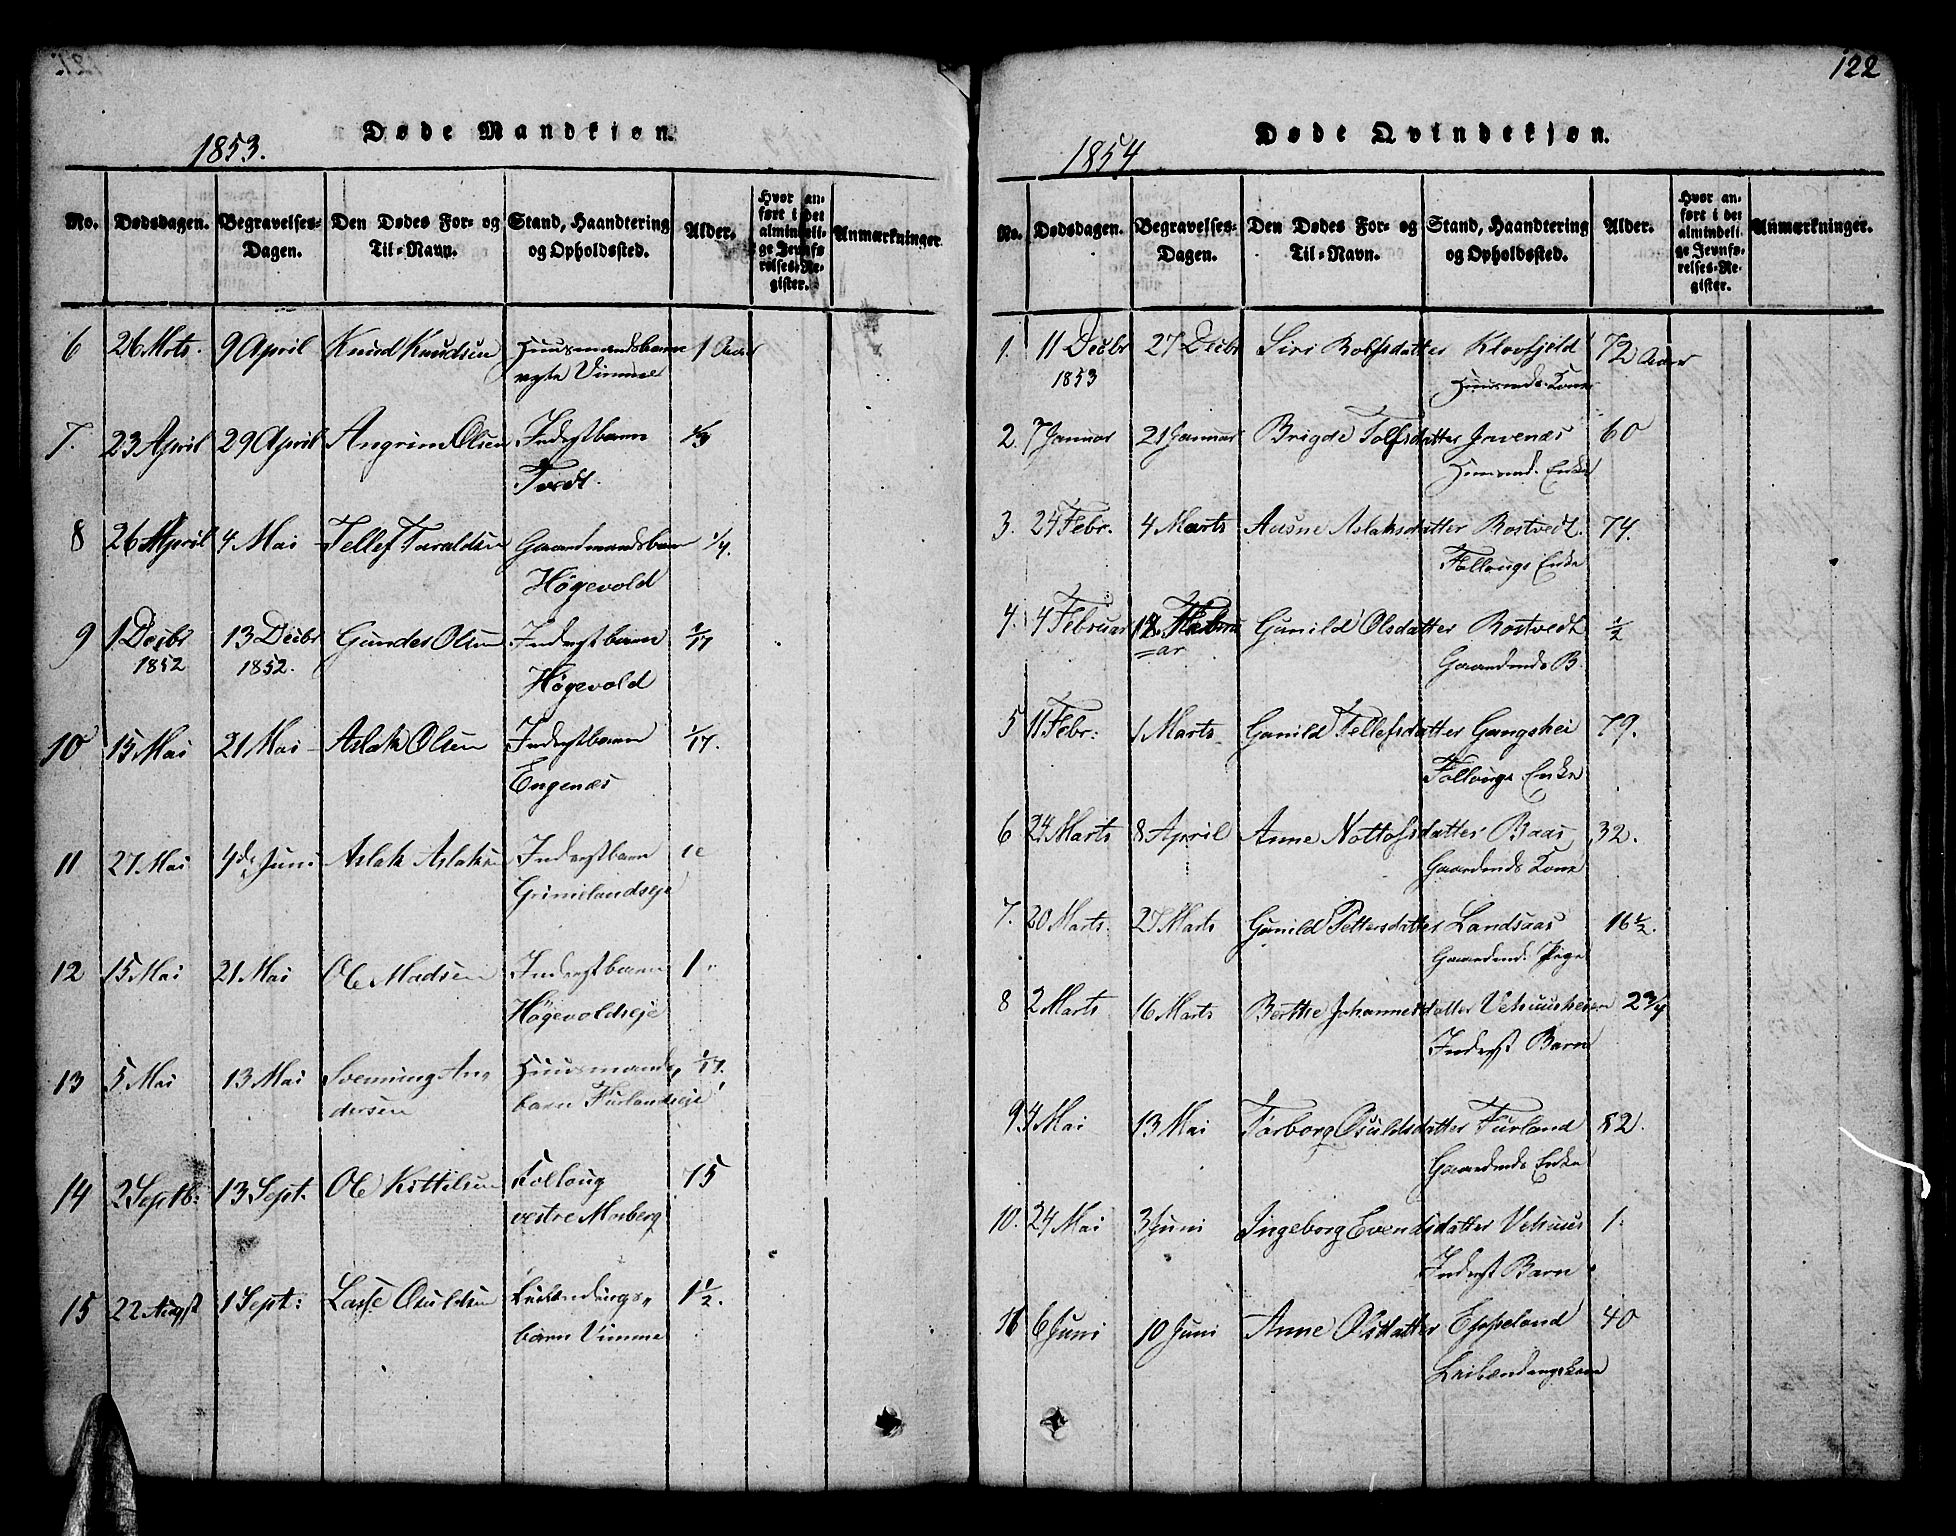 122
Døde Mandkjøn.
1853.
No. Dødsdagen. Begravelses-Dagen. Den Dødes For- og Til-Navn. Stand, Haandtering og Opholdssted. Alder. Hvor anført i det almindelige Jevnførelses-Register. Anmærkninger
6 26 Mrts. 9 April Knud Knudsen Huusmandsbarn 1 Aar
Vimme
7. 23 April 29 April Angrim Olsen Inderstbarn
Tvedt.
8 26 April 4 Mai Tellef Taraldsen Gaardmandsbarn 1/4.
Høgevold
9 1 Decbr 13 Decbr Gunder Olsen Inderstbarn
1852 1852. Høgevold
10 15 Mai 21 Mai Aslak Olsen Inderstbarn
Engenæs
11 27 Mai 4de Juni Aslak Aslaksen Inderstbarn
Grimelandseje
12 15 Mai 21 Mai Ole Madsen Inderstbarn 1
Høgevoldseje
13 5 Mai 13 Mai Svenning An- Huusmands-
dersen barn Furlandseje
14 2 Septb: 13 Sept. Ole Kittilsen Folloug 75
vestre Mosberg
15 22 Augst 1 Sept: Lasse Osuldsen Leilændings-
barn Vimme 1 1/2.
Døde Qvindekjøn.
1854
No. Dødsdagen. Begravelses-Dagen. Den Dødes For- og Til-Navn. Stand, Haandtering og Opholdssted. Alder. Hvor anført i det almindelige Jevnførelses-Register. Anmærkninger.
1. 11 Decbr 27 Decbr Siri Rolfsdatter Klovfjeld 72 Aar
1853 Huusmds. Kone
2. 7 Januar 21 Januar Brigde Tolfsdatter Irvenæs 60
Huusmd. Enke
3. 24 Febr. 4 Marts Aasne Aslaksdatter Rostvedt. 74.
Follougs Enke
4. 4 Februar Gunild Olsdatter Rostvedt 1/2
=ar Gaardmds B.
5 11 Febr: 1 Marts Gunild Tellefsdatter Gangshei 79.
Follougs Enke
6 24 Marts 8 April Anne Nottolfsdatter Raas 32.
Gaardmds Kone
7. 20 Marts. 27 Marts Gunild Pettersdatter Landsaas 16 1/2.
Gaardmd. Pige
8 2 Marts 16 Marts Berthe Johannesdatter Vehuusheien 2 3/4
Inderst Barn
9 4 Mai 13 Mai Torborg Osuldsdatter Furland 82.
Gaardmds Enke
10. 24 Mai 3 Juni Ingeborg Evendsdatter Vehuus 1.
Inderst Barn
11 6 Juni 10 Juni Anne Olsdatter Eppeland 40
Leilændingskone